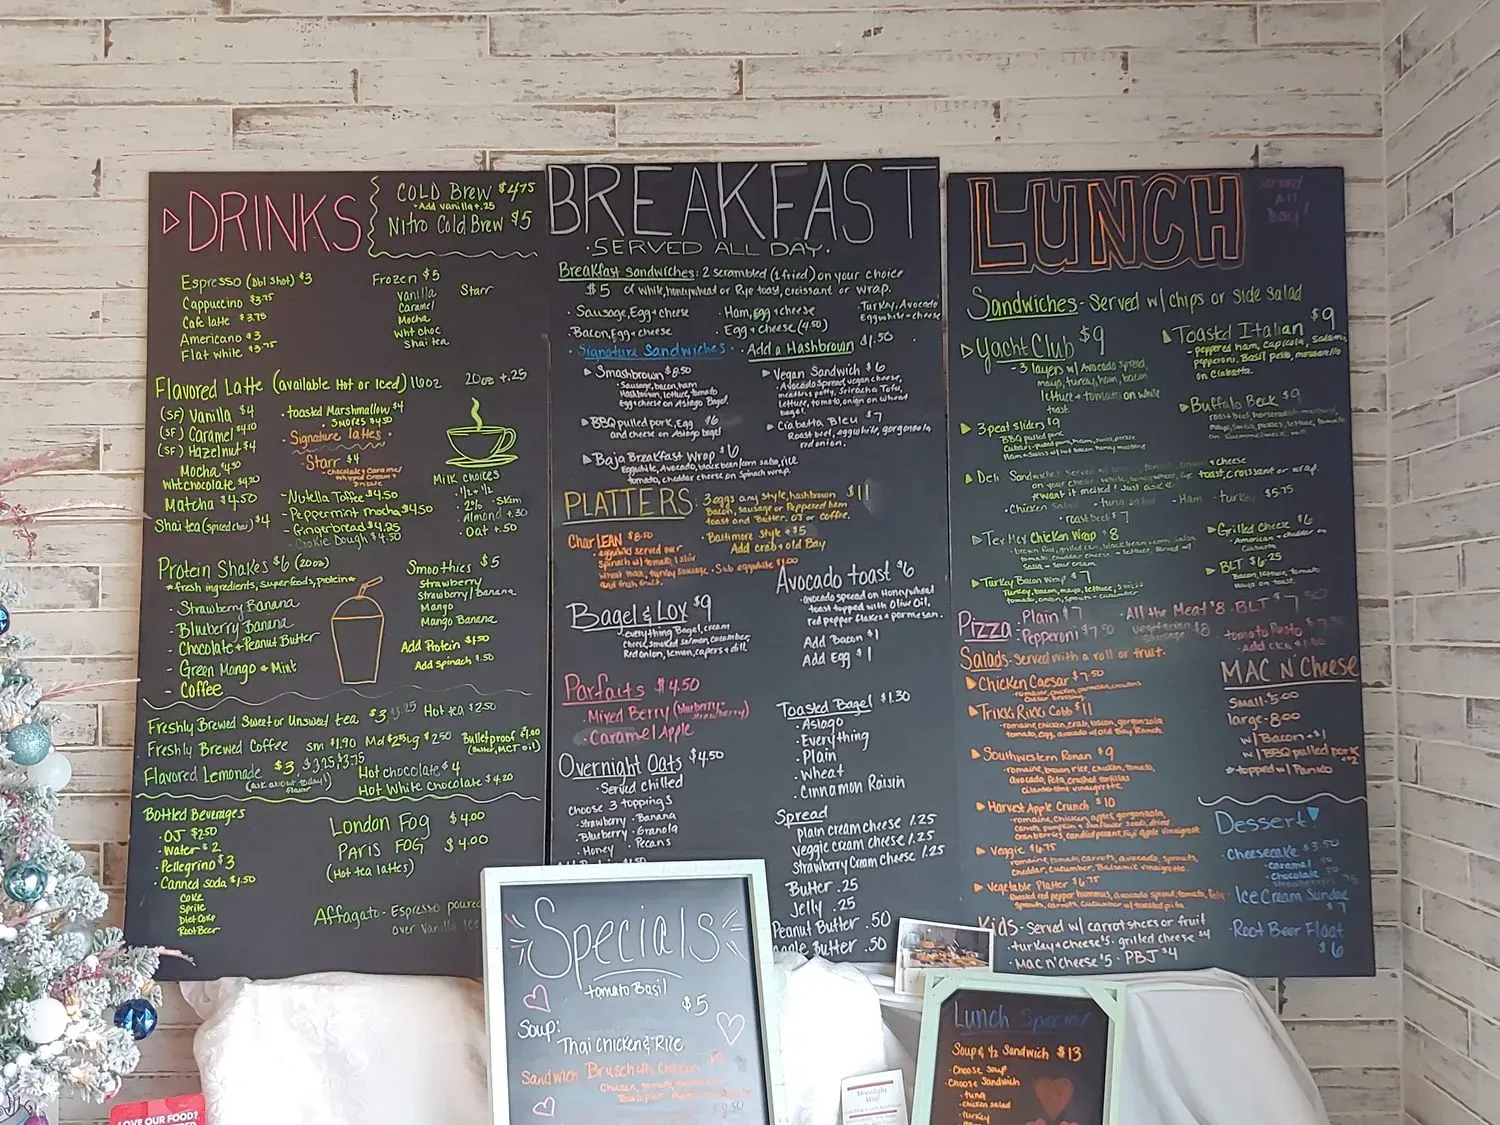 DRINKS
COLD Brew $4.75
• Add vanilla +.25
Nitro Cold Brew $5
Espresso (Dbl Shot) $3
Cappuccino $3.75
Cafe latte $3.75
Americano $3
Flat white $3.75
Frozen $5
Vanilla
Caramel
Mocha
Wht choc
Shai tea
Starr
Flavored Latte (available Hot or Iced) 16oz 20oz +.25
(SF) Vanilla $4
(SF) Caramel $4.10
(SF) Hazelnut $4
Mocha $4.50
Wht chocolate $4.20
Matcha $4.50
Shai tea (spiced chai) $4
• toasted Marshmallow $4
• Smores $4.50
• Signature lattes •
Starr $4
- Nutella Toffee $4.50
- Peppermint mocha $4.50
- Gingerbread $4.25
- Cookie Dough $4.50
Milk choices
• ½ + ½
• 2% • Skim
• Almond +.30
• Oat +.50
Protein Shakes $6 (20oz)
*fresh ingredients, superfoods, protein*
- Strawberry Banana
- Blueberry Banana
- Chocolate + Peanut Butter
- Green Mango + Mint
- Coffee
Smoothies $5
Strawberry
Strawberry/Banana
Mango
Mango Banana
Add Protein $1.50
Add spinach $.50
Freshly Brewed Sweet or Unsweet tea $3 Hot tea $2.50
Freshly Brewed Coffee sm $1.90 Md $2.25 Lg $2.50 Bulletproof $1.00
(Butter, MCT oil)
Flavored Lemonade $3 $3.25 $3.75
(ask about today's flavor)
Hot chocolate $4
Hot White Chocolate $4.20
Bottled Beverages
• OJ $2.50
• Water $2
• Pellegrino $3
• Canned soda $1.50
Coke
Sprite
Diet Coke
Root Beer
London Fog $4.00
Paris Fog $4.00
(Hot tea lattes)
Affagato - Espresso poured
over Vanilla Ice
BREAKFAST
• SERVED ALL DAY •
Breakfast Sandwiches: 2 scrambled (1 fried) on your choice
$5 of white, honeywheat or Rye toast, croissant or wrap.
• Sausage, Egg + cheese
• Bacon, Egg + cheese
• Ham, egg + cheese
• Egg + cheese (4.50)
• Turkey, Avocado
Eggwhite + cheese
• Signature Sandwiches •
Add a Hashbrown $1.50
Smashbrown $8.50
• Sausage, bacon, ham
Hashbrown, lettuce, tomato
Egg + cheese on Asiago Bagel
BBQ pulled pork, Egg $6
and cheese on Asiago bagel
Baja Breakfast Wrap $6
Eggwhite, Avocado, black bean/corn salsa, rice
tomato, cheddar cheese on Spinach wrap.
Vegan Sandwich $6
• Avocado Spread, vegan cheese,
meatless patty, Sriracha Tofu,
lettuce, tomato, onion on Wheat
bagel.
Ciabatta Bleu $7
Roast beef, egg white, gorgonzola
red onion.
PLATTERS
3 eggs any style, hashbrown $11
Bacon, sausage or Peppered ham
toast and Butter. OJ or Coffee.
• Baltimore Style +$5
Add crab + old Bay
• Sub eggwhite $1.00
Char LEAN $8.50
• eggwhites served over
Spinach w/ tomato, 1 slice
Wheat toast, turkey sausage
and fresh fruit.
Bagel & Lox $9
everything Bagel, cream
cheese, smoked salmon, cucumber,
Red onion, lemon, capers + dill
Avocado toast $6
avocado spread on Honeywheat
toast topped with Olive Oil,
red pepper flakes + parmesan.
Add Bacon $1
Add Egg $1
Parfaits $4.50
• Mixed Berry (blueberry-
strawberry)
• Caramel Apple
Overnight Oats $4.50
• Served chilled
Choose 3 toppings
• Strawberry • Banana
• Blueberry • Granola
• Honey • Pecans
Toasted Bagel $1.30
• Asiago
• Everything
• Plain
• Wheat
• Cinnamon Raisin
Spread
Plain cream cheese 1.25
Veggie cream cheese 1.25
Strawberry Cream Cheese 1.25
Butter .25
Jelly .25
Peanut Butter .50
Apple Butter .50
LUNCH
Served
All
Day!
Sandwiches - Served w/ chips or side salad
Yacht Club $9
- 3 layers w/ Avocado spread,
mayo, turkey, ham, bacon
lettuce + tomato on white
toast
Toasted Italian $9
- peppered ham, capicola, salami,
pepperoni, Basil pesto, mozzarella
on Ciabatta.
3 peat sliders $9
BBQ pulled pork
Buffalo Beck $9
Deli Sandwiches
toast, croissant or wrap.
• Chicken Salad • tuna salad • Ham • turkey $5.75
• roast beef $7
Tex Mex Chicken Wrap $8
Grilled Cheese $6
• American + cheddar on
Ciabatta
Turkey Bacon Wrap $7
Turkey, bacon, mayo, lettuce, swiss
BLT $6.25
Bacon, lettuce, tomato
Mayo on toast.
Pizza
• Plain $7
• Pepperoni $7.50
• All the Meat $8
Vegetarian $8
• BLT $7.50
tomato Pesto
- Add CKN
Salads - Served with a roll or fruit -
• Chicken Caesar $7.50
• romaine, chicken, parmesan, croutons
Caesar dressing
• Trikki Rikki Cobb $11
• romaine, chicken, crab, bacon, gorgonzola
tomato, egg, avocado w/ Old Bay Ranch
Southwestern Ronan $9
• romaine, brown rice, chicken, tomato,
avocado, feta, crushed tortillas
cilantro lime vinaigrette.
Harvest Apple Crunch $10
• romaine, chicken, apples, gorgonzola
carrots, pumpkin + sunflower seeds, dried
cranberries, candied pecans, Fuji Apple vinaigrette
Veggie $6.75
romaine, tomato, carrots, avocado, sprouts,
cheddar, cucumber, Balsamic vinaigrette.
Vegetable Platter $6.75
• Roasted red pepper hummus, avocado spread, tomato, feta
sprouts, carrots, cucumber w/ toasted pita
MAC N Cheese
Small - 5.00
large - 8.00
w/ Bacon +$1
w/ BBQ pulled pork
+$2
* topped w/ Panko
Dessert!
• Cheesecake $3.50
- caramel
- chocolate
Ice Cream Sundae
$7
• Root Beer Float
$6
Kids - Served w/ carrot sticks or fruit
• turkey + cheese $5 • grilled cheese $4
• Mac n' cheese $5 • PBJ $4
Specials
tomato Basil
$5
Soup:
Thai Chicken & Rice
Sandwich
Lunch Special
Soup & ½ Sandwich $13
• Choose Soup
• Choose Sandwich
• tuna
• Chicken salad
• turkey
• Ham
LOVE OUR FOOD?